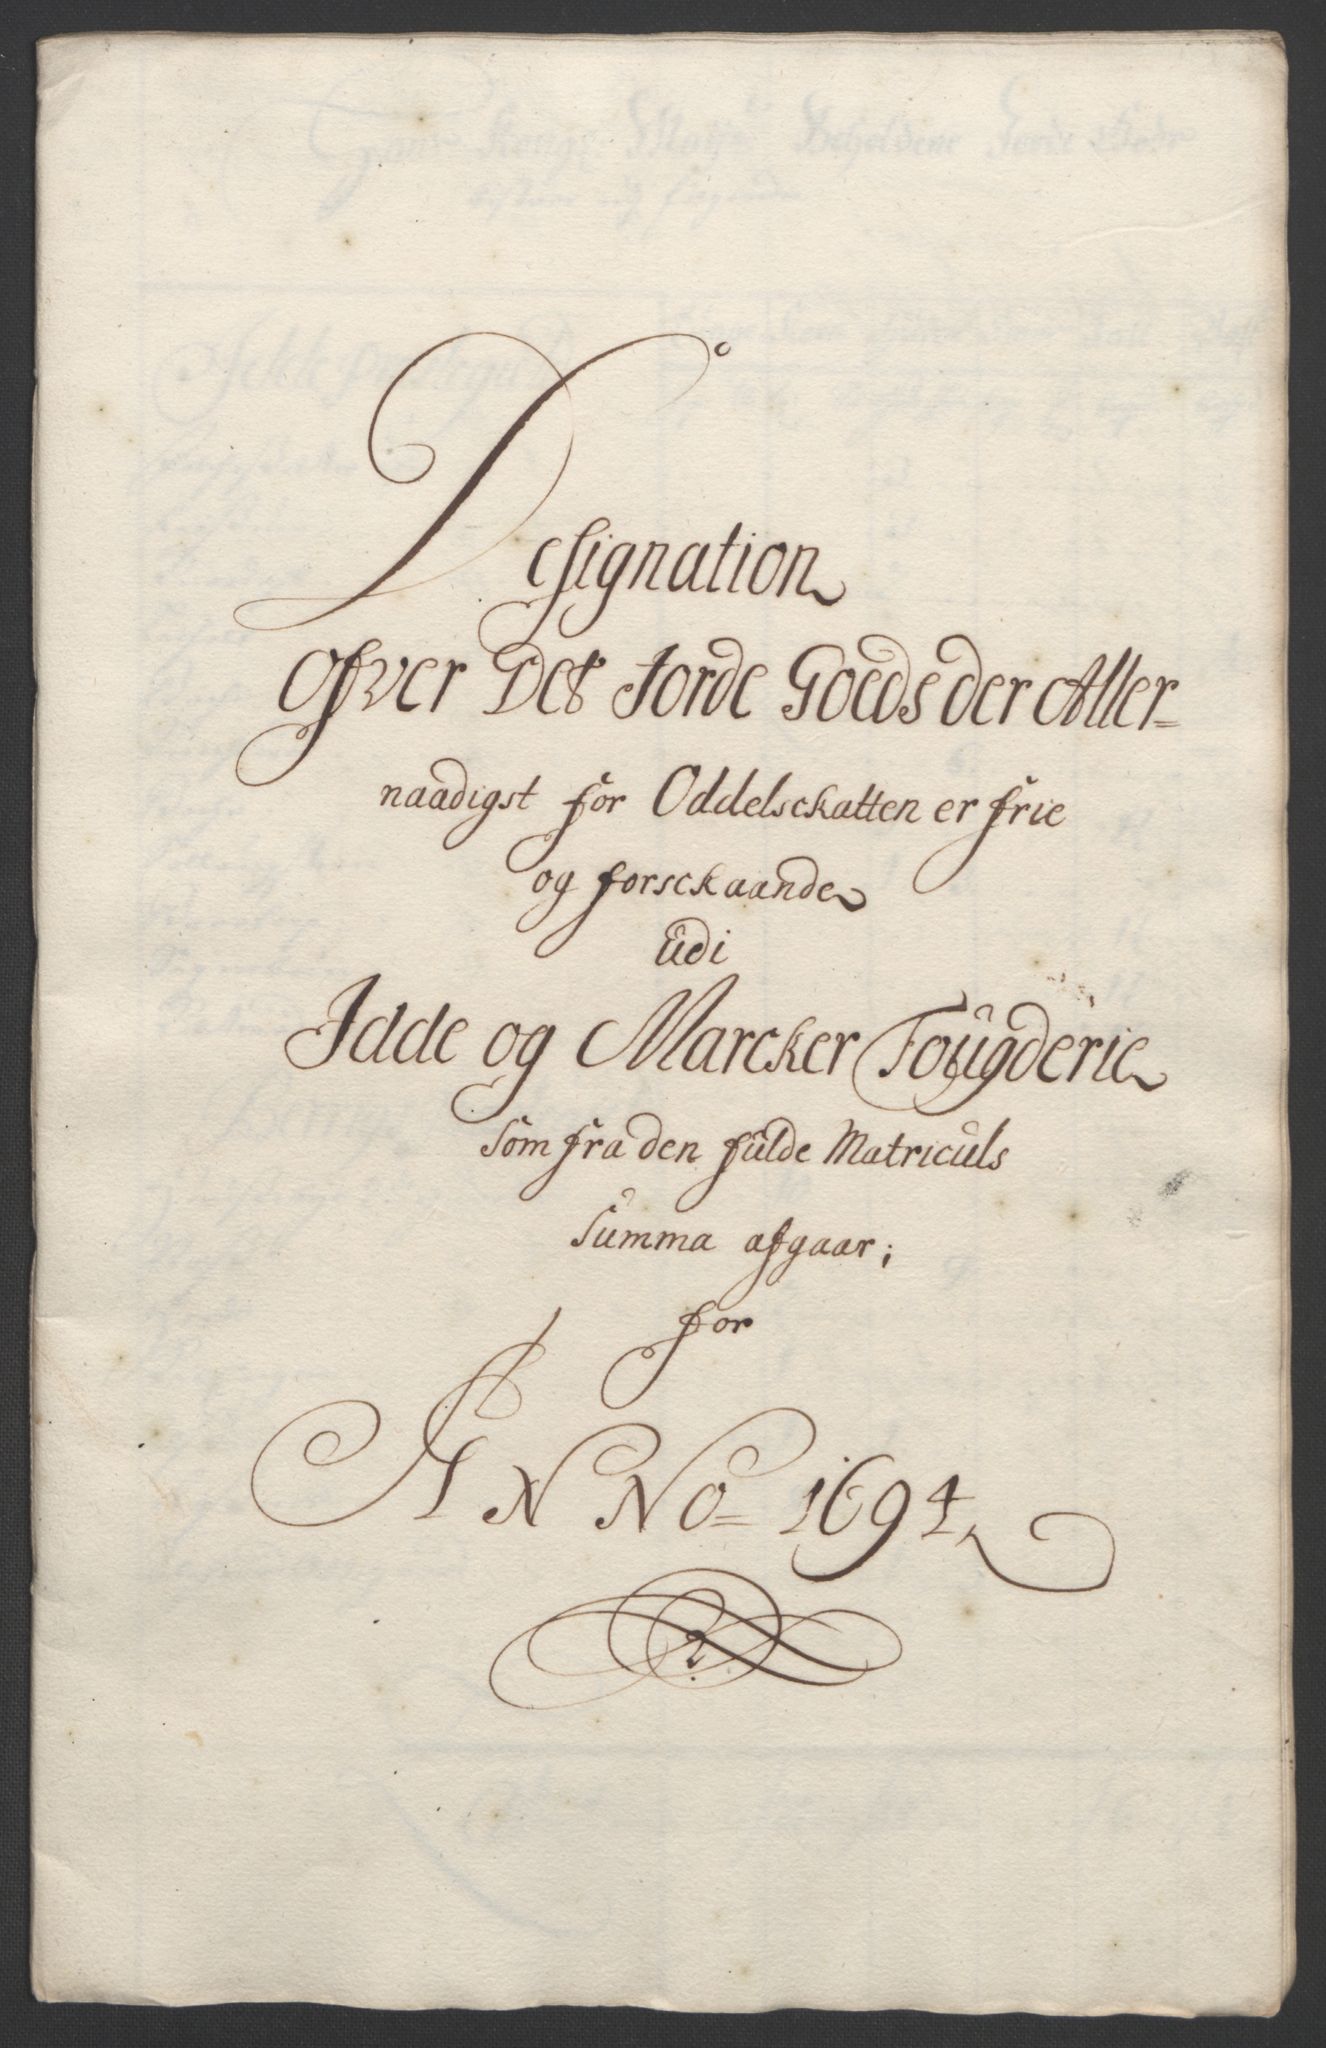 Designation
Ofver Det Jorde Goeds der Aller=
naadigst for Oddelsckatten er frie
og forsckaande
udi
Idde og Marcker Fougderie
som fra den fulde Matriculs
Summa afgaar;
for
ANNO= 1694
2.